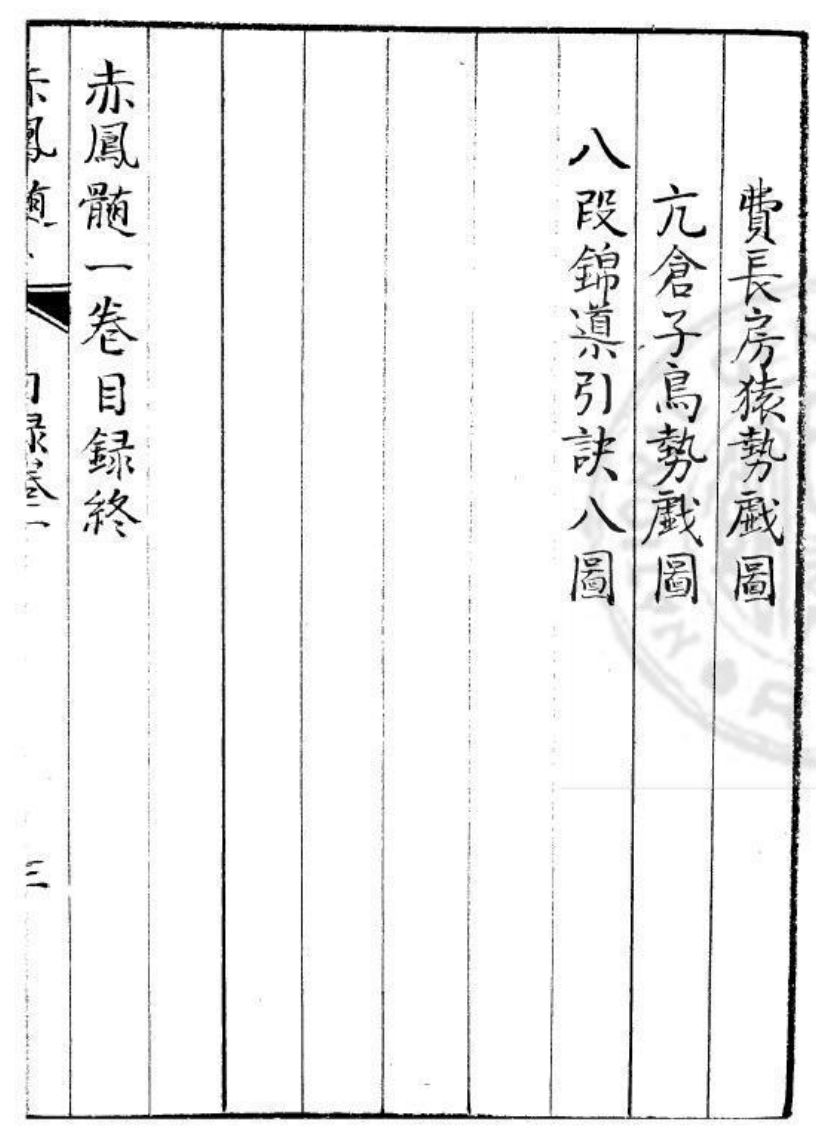 費長房猿勢戲圖
亢倉子鳥勢戲圖
八段錦導引訣八圖
赤鳳髄一卷目録終
赤鳳髄
目録卷一
三